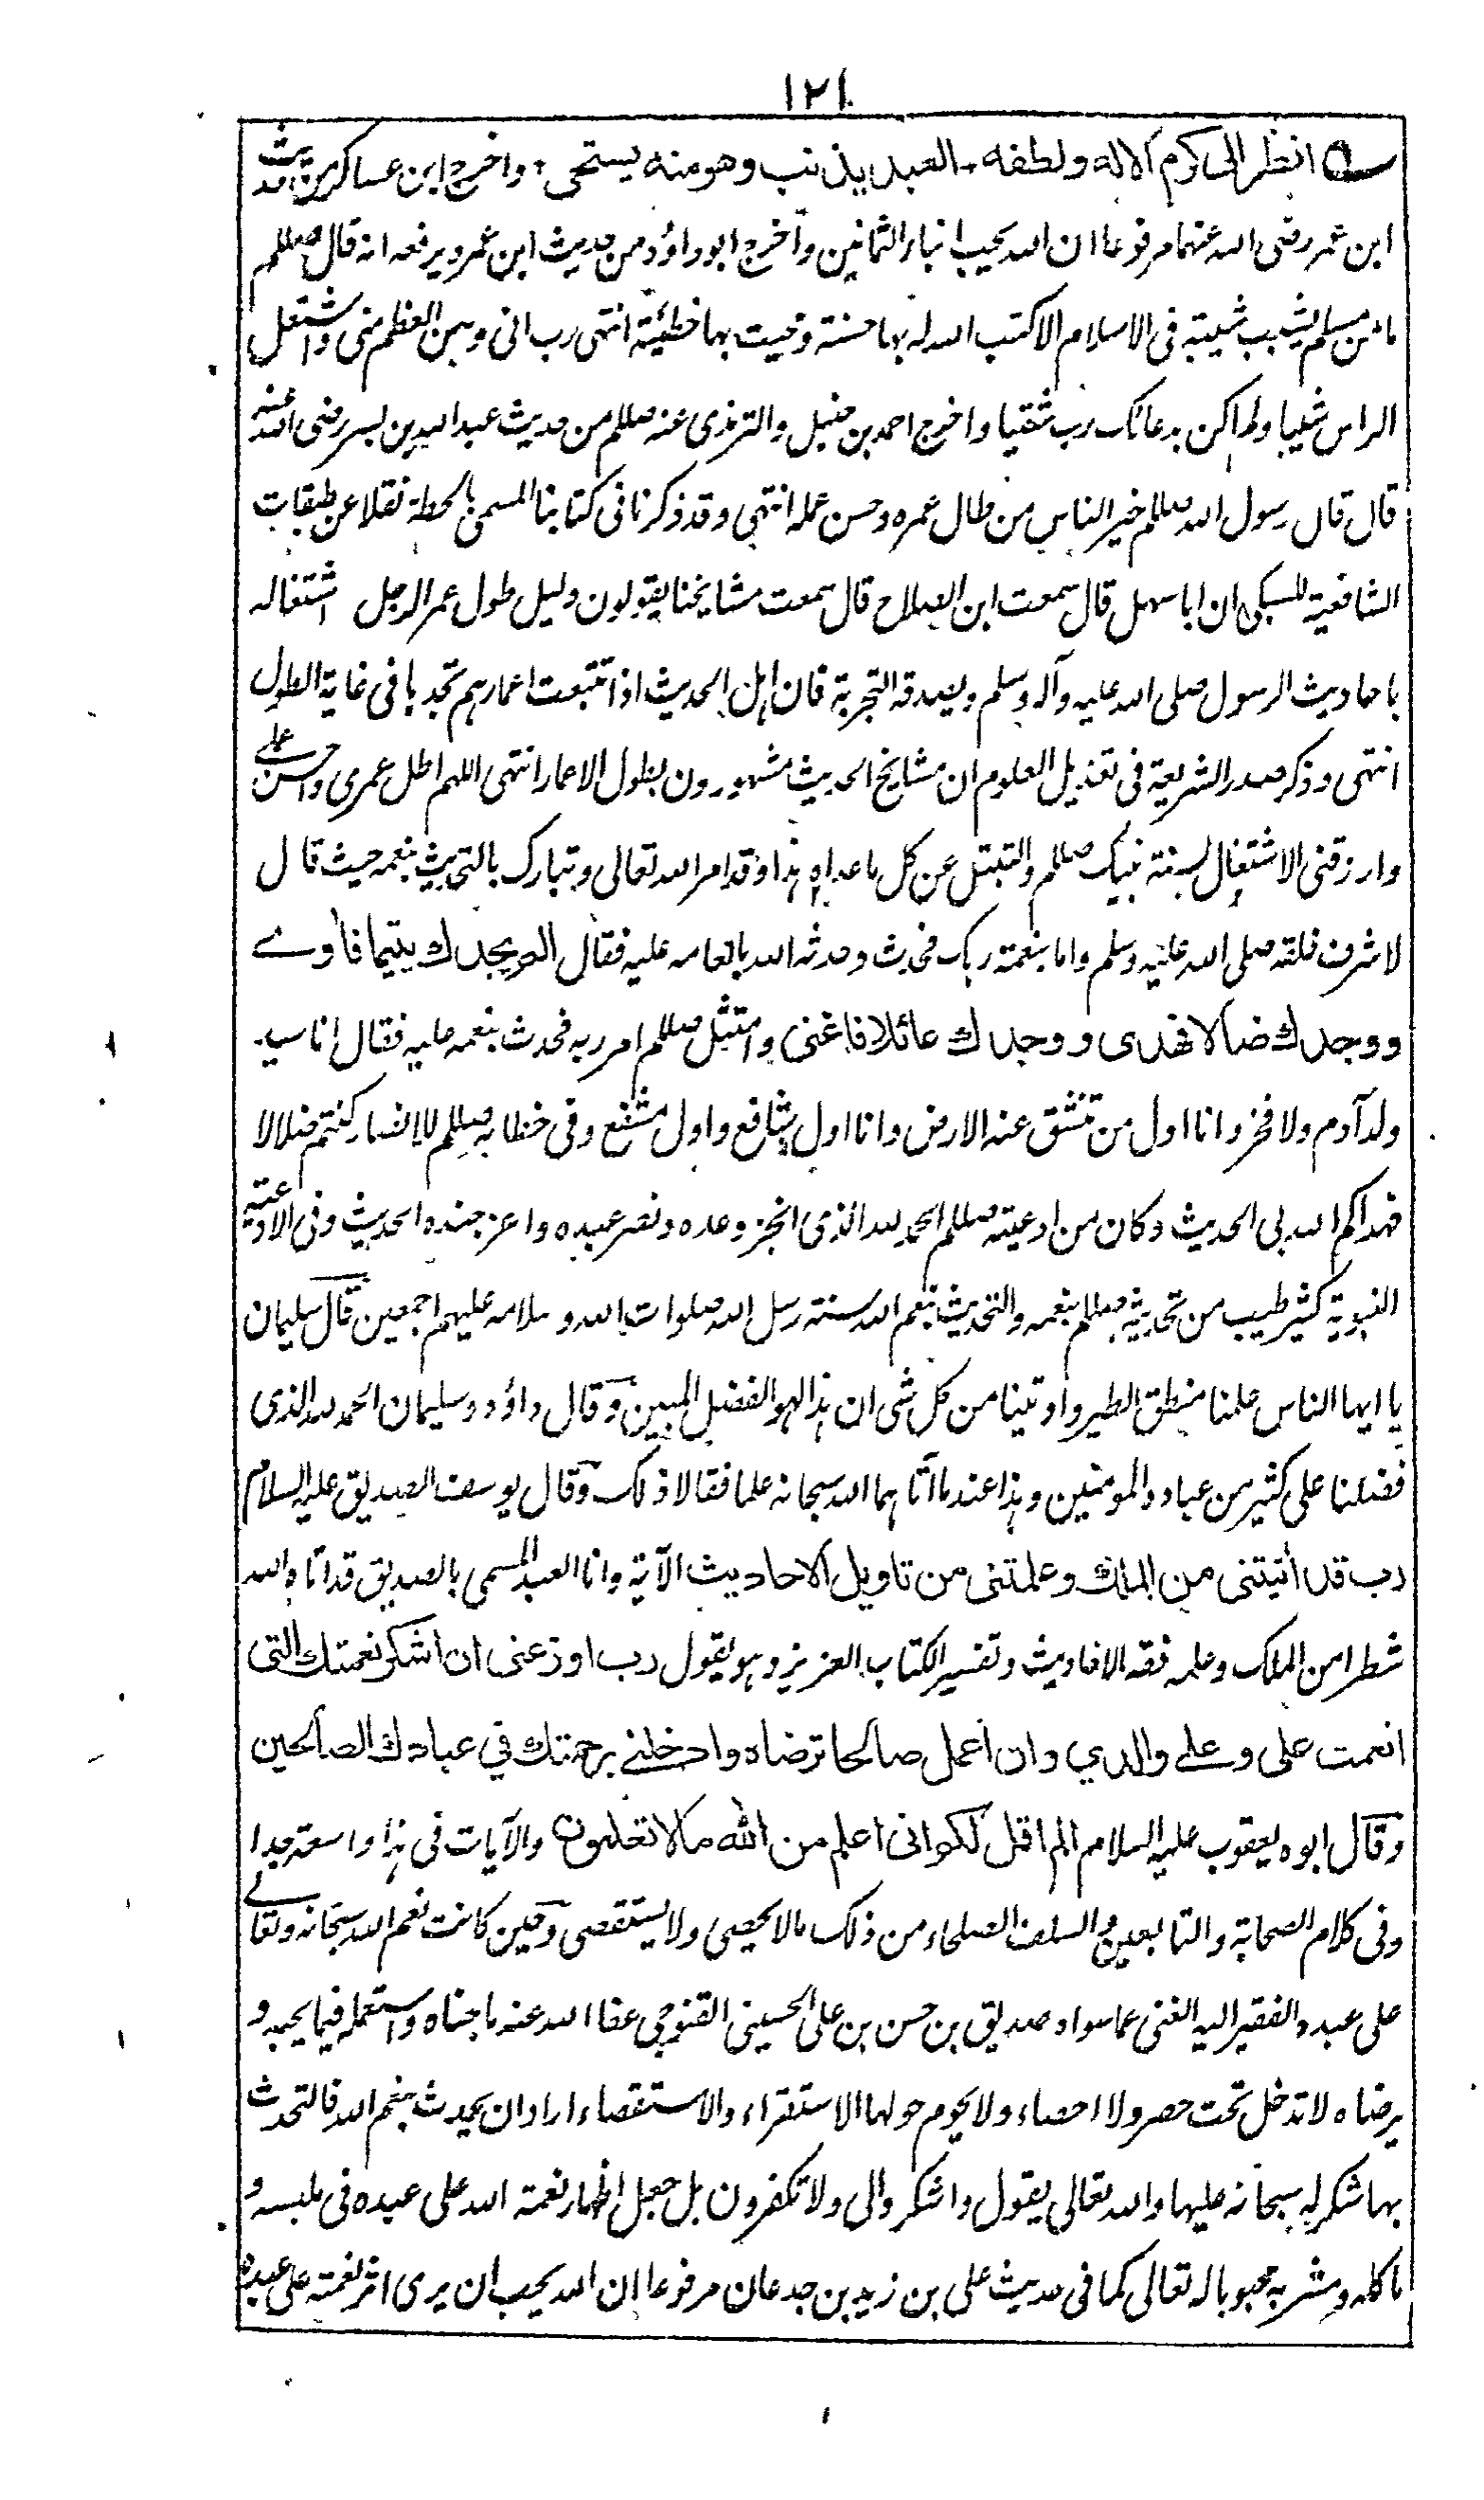 ١٢١
انظر الى كرم الاله ولطفه ۔ العبد يذنب وهو منه يستحى ؛ واخرج ابن عساكر من حديث
ابن عمر رضى الله عنهما مرفوعا ان الله يحب ابناء الثمانين وآخرج ابو داؤد من حديث ابن عمرو يرفعه انه قال صللم
ما من مسلم يشيب شيبة فى الاسلام الا كتب الله له بها حسنة وحيت بها خطيئة انتهى رب انى وهن العظم منى واشتعل
الراس شيبا ولم اكن بدعائك رب شقيا واخرج احمد بن حنبل والترمذى عنه صللم من حديث عبد الله بن بسر رضى الله عنه
قال قال رسول الله صللم خير الناس من طال عمره وحسن عمله انتهى وقد ذكرنا فى كتابنا المسمى بالحطة نقلا عن طبقات
الشافعية للسبكى ان ابا سهل قال سمعت ابن الصلاح قال سمعت مشايخنا يقولون دليل طول عمر الرجل اشتغاله
باحاديث الرسول صلى الله عليه وآله وسلم ويصدقه التجربة فان اهل الحديث اذا تتبعت اعمارهم تجدها فى غاية الطول
انتهى وذكر صدر الشريعة فى تعديل العلوم ان مشايخ الحديث مشهورون بطول الاعمار انتهى اللهم اطل عمرى واحسن عملى
وارزقنى الاشتغال بسنة نبيك صللم والتبتل عن كل ما عداه هذا وقد امر الله تعالى وتبارك بالتحديث بنعمه حيث قال
لاشرف خلقه صلى الله عليه وسلم واما بنعمة ربك فحدث وحدثه الله بانعامه عليه فقال الم يجدك يتيما فاوے
ووجدك ضالا فهدى ووجدك عائلا فاغنى وامتثل صللم امر ربه فحدث بنعمه عليه فقال انا سيد
ولد آدم ولا فخر وانا اول من تنشق عنه الارض وانا اول شافع واول مشفع وفى خطابه صللم للانصار كنتم ضلالا
فهداكم الله بى الحديث وكان من ادعيته صللم الحمد لله الذى انجز وعده ونصر عبده واعز جنده الحديث وفى الادعية
النبوية كثير طيب من تحديثه صللم بنعمه والتحديث بنعم الله سنة رسل الله صلوات الله وسلامه عليهم اجمعين قال سليمان
يا ايها الناس علمنا منطق الطير واوتينا من كل شى ان هذا لهو الفضل المبين وقال داؤد وسليمان الحمد لله الذى
فضلنا على كثير من عباده المومنين وهذا عند ما آتاهما الله سبحانه علما فقالا ذلك وقال يوسف الصديق عليه السلام
رب قد اٰتيتنى من الملك وعلمتنى من تاويل الاحاديث الآية وانا العبد المسمى بالصديق قد اتاه الله
شطرا من الملك وعلمه فقه الاحاديث وتفسير الكتاب العزيز وهو يقول رب اوزعنى ان اشكر نعمتك التى
انعمت على وعلے والدي وان اعمل صالحا ترضاه وادخلنے برحمتك في عبادك الصالحين
وقال ابوه يعقوب عليه السلام الم اقل لكم انى اعلم من الله ما لا تعلمون والآيات فى هذا واسعة جدا
وفى كلام الصحابة والتابعين والسلف الصلحاء من ذلك ما لا يحصى ولا يستقصى وحين كانت نعم الله سبحانه وتعالے
على عبده الفقير اليه الغنى عما سواه صديق بن حسن بن على الحسينى القنوجى عفا الله عنه ما جناه واستعمله فيما يحبه و
يرضاه لا تدخل تحت حصر ولا احصاء ولا يحوم حولها الاستقراء والاستقصاء اراد ان يحدث بنعم الله فالتحدث
بها شكر له سبحانه عليها والله تعالى يقول واشكروا لى ولا تكفرون بل جعل اظهار نعمة الله على عبده فى ملبسه و
ماكله ومشربه محبوبا له تعالى كما فى حديث على بن زيد بن جدعان مرفوعا ان الله يحب ان يرى اثر نعمته على عبده